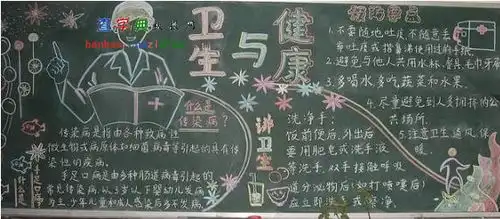 卫生与健康
什么是传染病?
传染病是指由各种致病性
微生物或病原体如细菌病毒等引起的具有传
染性的疾病。
手足口病是由多种肠道病毒引起的
常见传染病,以3岁以下婴幼儿发病
为主,少年儿童和成人感染后多不发病
什么是手足口病
讲卫生
洗净手:
饭前便后、外出后
要用肥皂或洗手液
等洗手,双手接触呼吸
道分泌物后(如打喷嚏后)
应立即洗手
预防
1.不要随地吐痰,不随意丢弃
带吐痰或揩鼻涕使用过的手纸
2.避免与他人共用水杯、餐具、毛巾、牙刷
3.多喝水,多吃蔬菜和水果。
4.尽量避免到人多拥挤的公
共场所。
5.注意卫生、通风、保
暖。